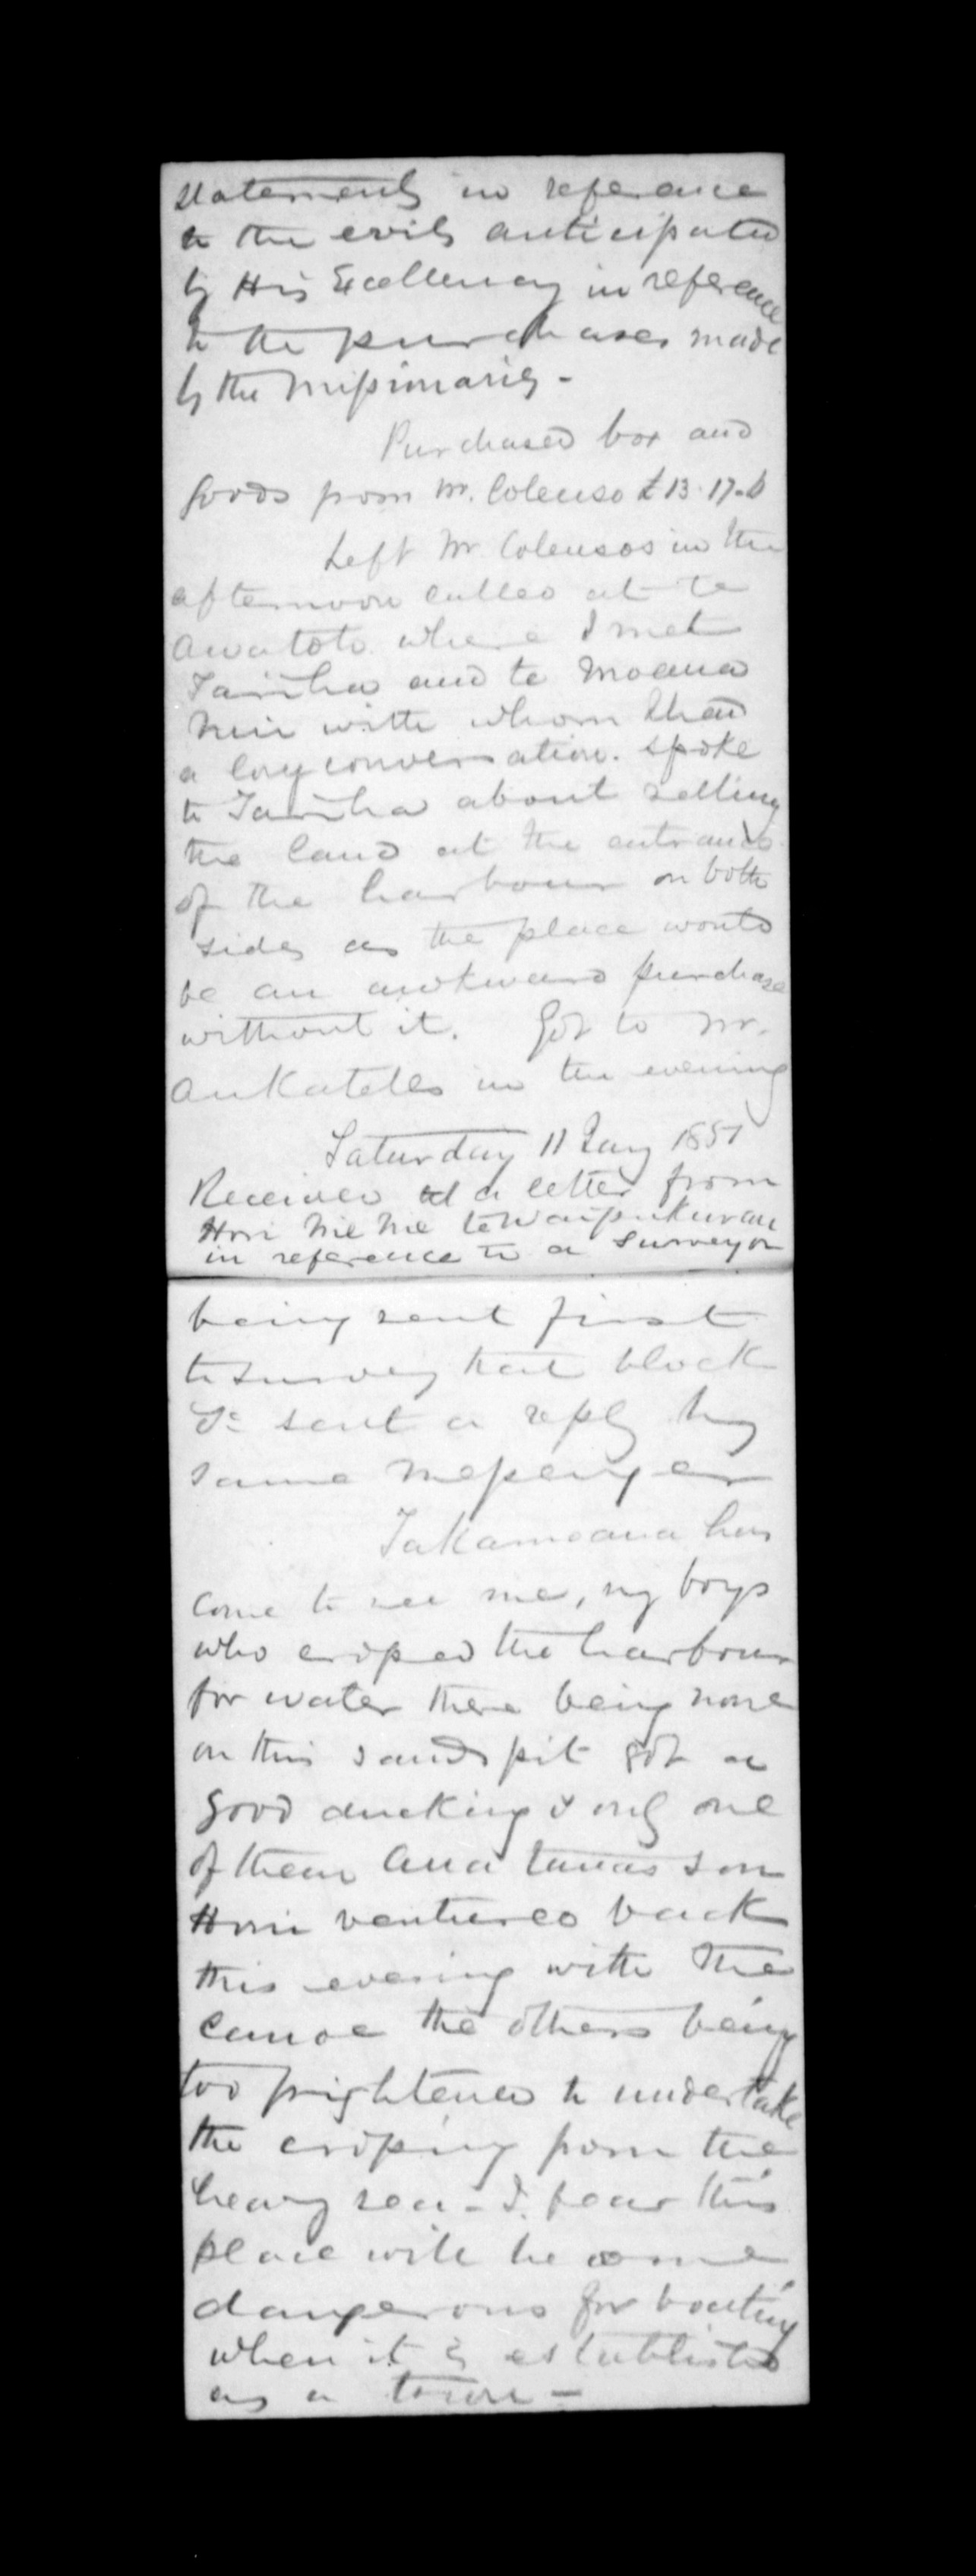 statements in reference
to the evils anticipated
by His Excellency in reference
to the purchases made
by the Missionaries -
Purchased box and
goods from Mr. Colenso £13.17.6
Left Mr Colensos in the
afternoon called at te
Awatoto where I met
Tareha and te Moana
nui with whom I had
a long conversation. spoke
to Tareha about selling
the land at the entrance
of the harbour on both
sides as the place would
be an awkward purchase
without it. Got to Mr.
Ankateles in the evening
Saturday 11 Jany 1851
Received a letter from
Hori Nie Nie te Waipukurau
in reference to a surveyor
being sent first
to survey that block
sent a reply by
same Messenger
Takamoana has
come to see me, my boys
who crossed the harbour
for water there being none
on this sandspit got a
good ducking & only one
of them son
Hori ventured back
this evening with the
canoe the others being
too frightened to undertake
the crossing from the
heavy sea - I fear this
place will become
dangerous for boating
when it is established
as a town -